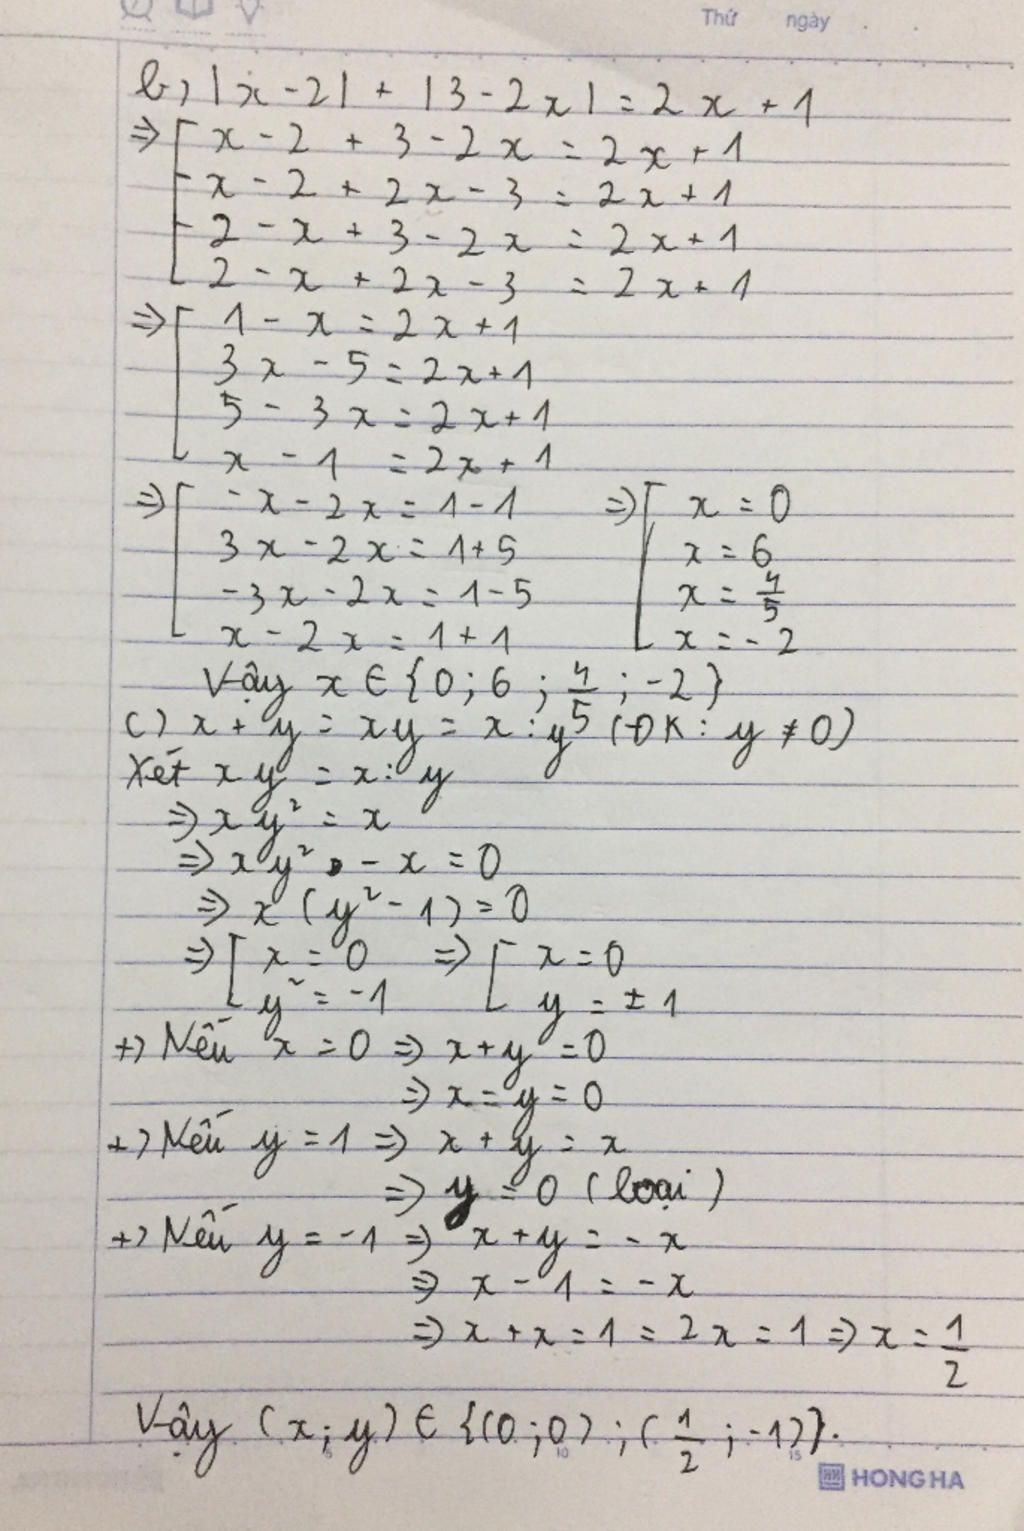 Thứ ngày
b) |x - 2| + |3 - 2x| = 2x + 1
=> [ x - 2 + 3 - 2x = 2x + 1
x - 2 + 2x - 3 = 2x + 1
2 - x + 3 - 2x = 2x + 1
2 - x + 2x - 3 = 2x + 1
=> [ 1 - x = 2x + 1
3x - 5 = 2x + 1
5 - 3x = 2x + 1
x - 1 = 2x + 1
=> [ -x - 2x = 1 - 1 => [ x = 0
3x - 2x = 1 + 5 x = 6
-3x - 2x = 1 - 5 x = 4/5
x - 2x = 1 + 1 x = -2
Vậy x ∈ {0; 6; 4/5; -2}
c) x + y = xy = x : y (ĐK: y ≠ 0)
Xét xy = x : y
=> xy² = x
=> xy² - x = 0
=> x (y² - 1) = 0
=> [ x = 0 => [ x = 0
y² = -1 y = ±1
+) Nếu x = 0 => x + y = 0
=> x = y = 0
+) Nếu y = 1 => x + y = x
=> y = 0 (loại)
+) Nếu y = -1 => x + y = -x
=> x - 1 = -x
=> x + x = 1 = 2x = 1 => x = 1/2
Vậy (x; y) ∈ {(0; 0); (1/2; -1)}.
5 10 15
HONG HA